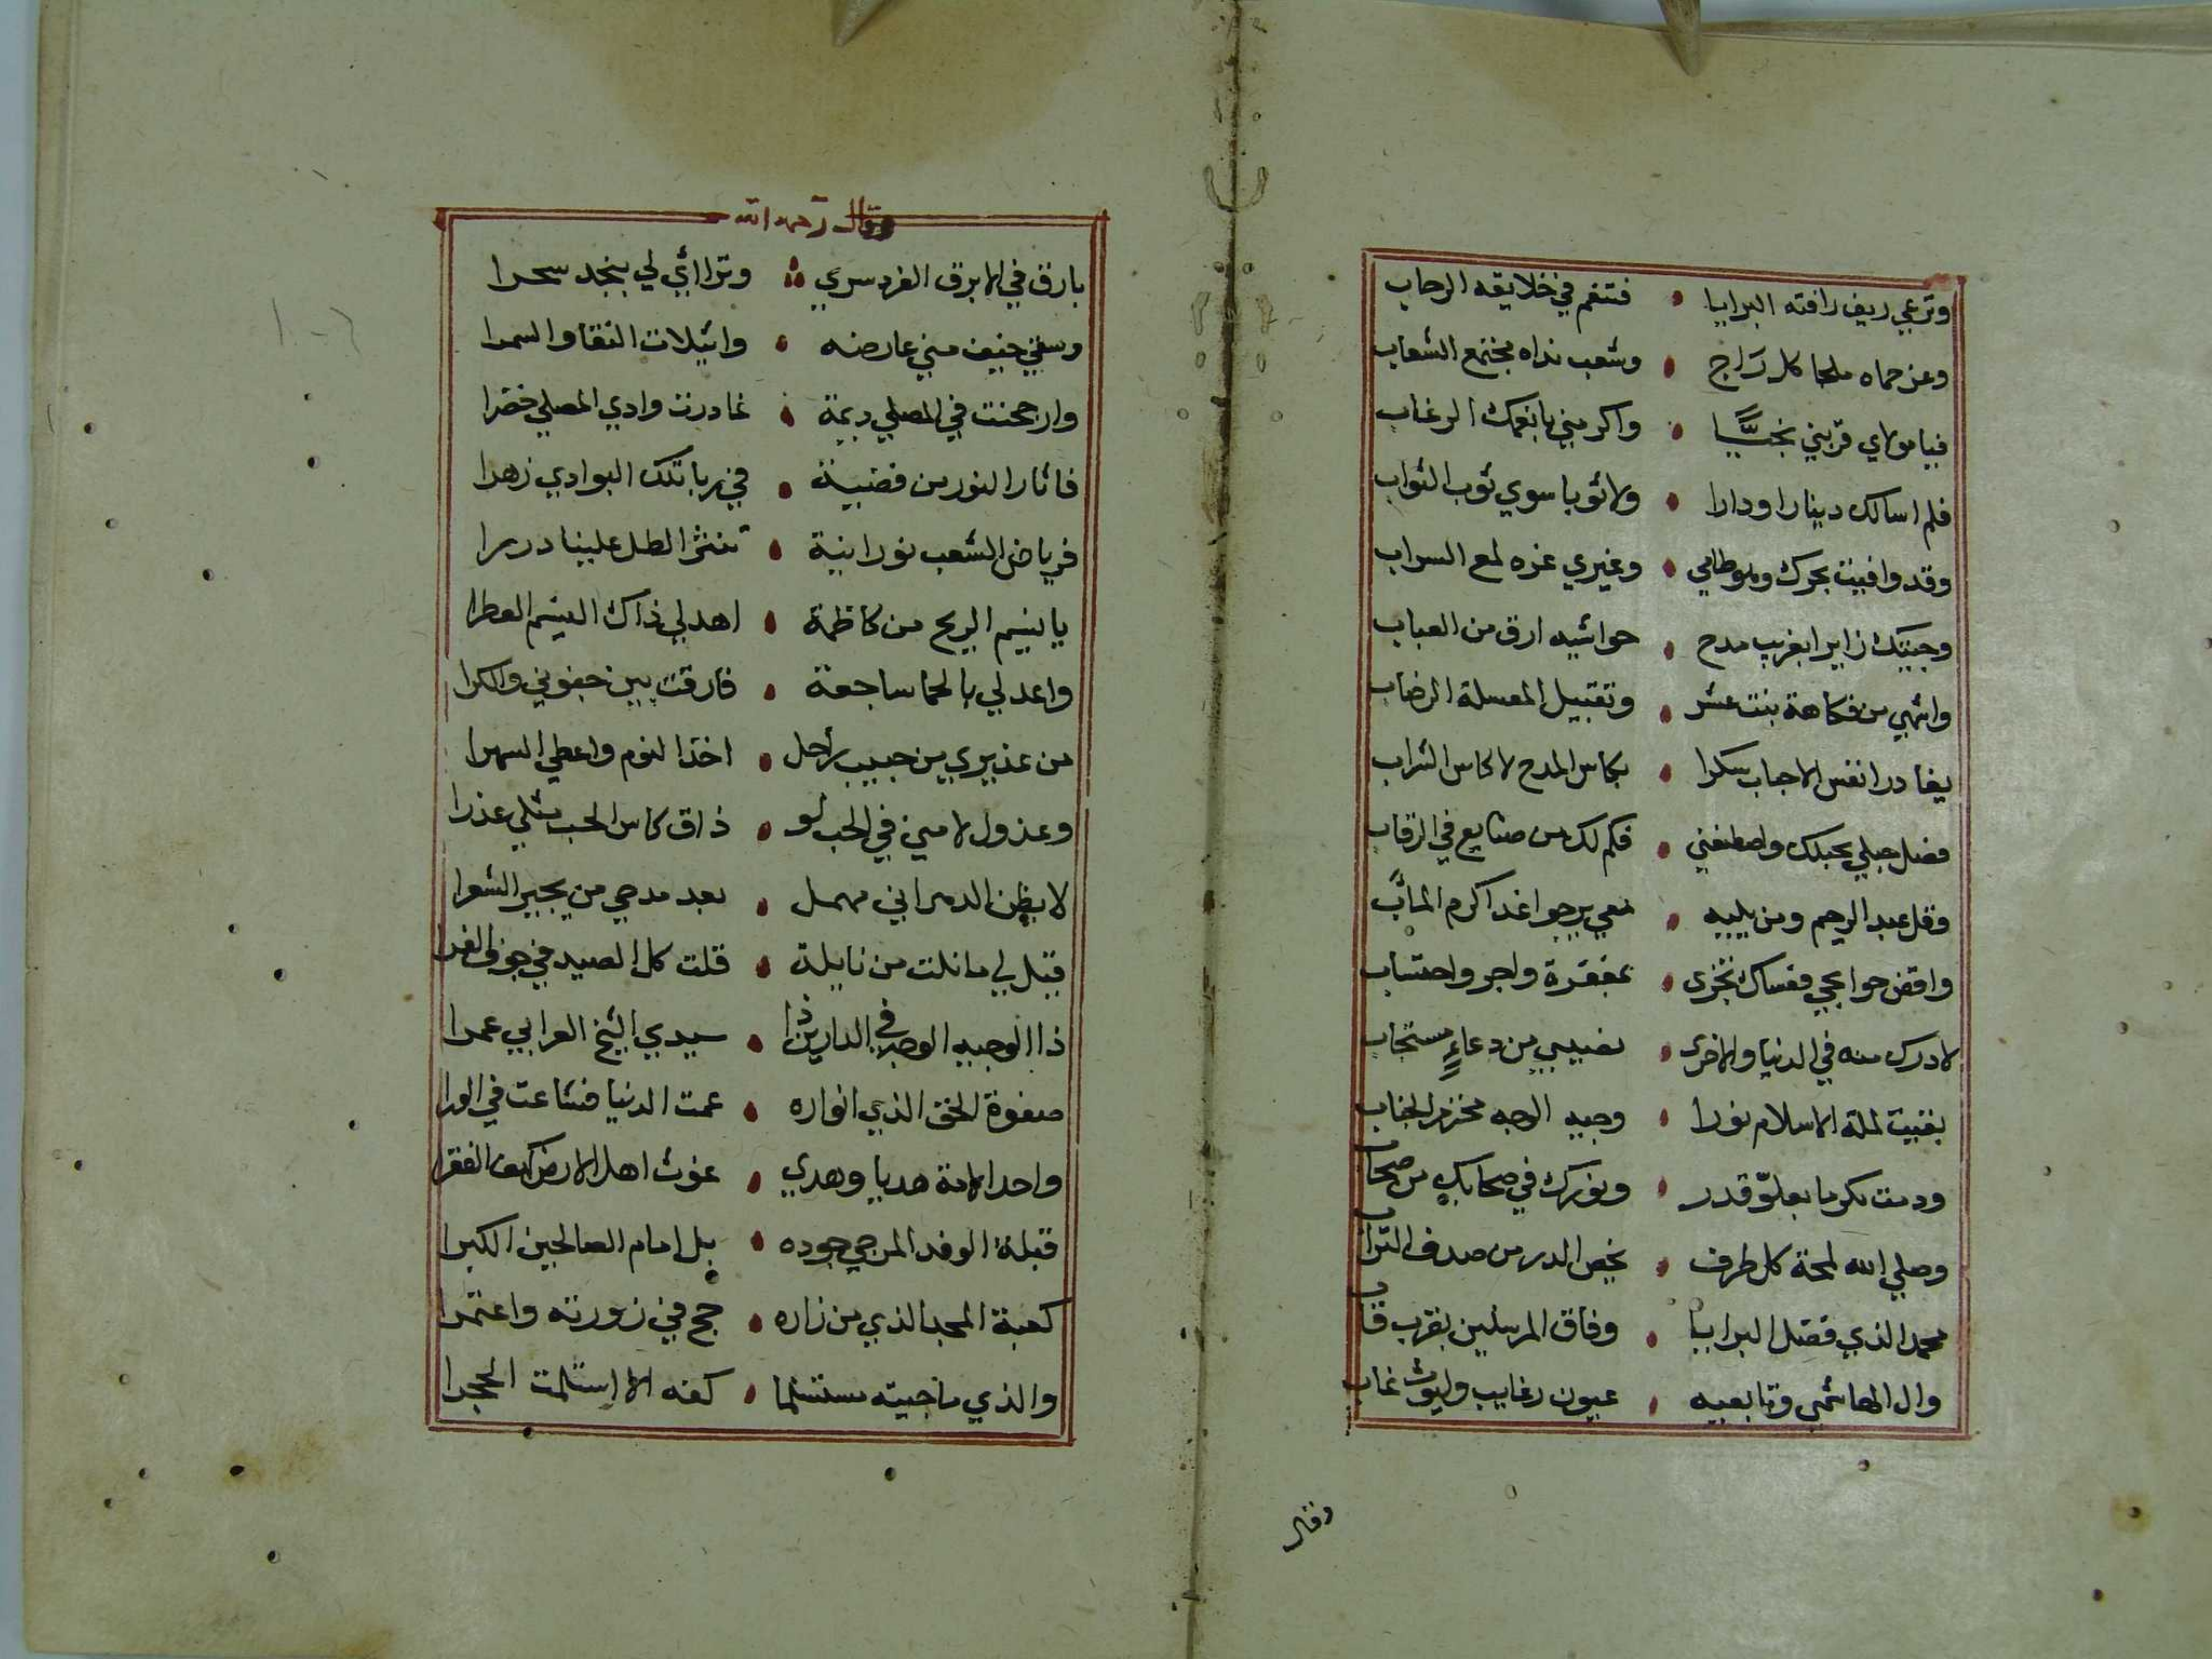 وترعي ريف رافته البرايا • فتنعم في خلايقه الرحاب
وعز حماه ملجا كل راج • وشعب نداه مجتمع الشعاب
فيا مولاي قربني نجيًّا • واكرمني بانعمك الرغاب
فلم اسالك دينارا ودارا • ولا ثوبا سوي ثوب الثواب
وقد وافيت بحرك وهو طامي • وغيري غره لمع السراب
وجيتك زايرا بغريب مدح • حواشيه ارق من العباب
واشهي من فكاهة بنت عشر • وتقبيل المعسلة الرضاب
يغادر انفس الاحباب سكرا • بكاس المدح لا كاس الشراب
فصل حبلي بحبلك واصطنعني • فكم لك من صنايع في الرقاب
وقل عبد الرحيم ومن يليه • معي يرجوا غدا كرم المآب
واقض حوايجي فعساك تجزى • بمغفرة واجر واحتساب
لادرك منه في الدنيا والاخرى • نصيبي من دعاءٍ مستجاب
بقيت لملة الاسلام نورا • وجيه الوجه محترم الجناب
ودمت مكرما بعلوّ قدر • ونورك في صحابك من صحاب
وصلي الله لمحة كل طرف • يخص الدر من صدف التراب
محمد الذي فضل البرايا • وفاق المرسلين بقرب قاب
وال الهاشمي وتابعيه • عيون رغايب وليوث غاب
وقال
وقال رحمه الله
بارق في الابرق الفرد سري • وتراائي لي بنجد سحرا
وسقي خيف مني عارضه • واثيلات النقا والسمرا
وارجحنت في المصلي ديمة • غادرت وادي المصلي خضرا
فاثار النور من فضية • في ربا تلك البوادي زهرا
فرياض الشعب نورانية • تنثر الطل علينا دررا
يا نسيم الريح من كاظمة • اهد لي ذاك النسيم العطرا
واعد لي بالحما ساجعة • فارقت بين جفوني والكرا
من عذيري من حبيب راحل • اخذ النوم واعطي السهرا
وعذول لامني في الحب لو • ذاق كاس الحب مثلي عذرا
لا يظن الدهر اني مهمل • بعد مدحي من يجير الشعرا
قيل لي ما نلت من نايلة • قلت كل الصيد في جوف الفرا
ذا الوجيه الوجه في الدارين ذا • سيدي الشيخ العرابي عمرا
صفوة الحق الذي انواره • عمت الدنيا فشاعت في الورا
واحد الامة هديا وهدي • غوث اهل الارض كهف الفقرا
قبلة الوفد المرجي جوده • بل امام الصالحين الكبرا
كعبة المجد الذي من زاره • حج في زورته واعتمرا
والذي ما جيته مستلما • كفه الا استلمت الحجرا